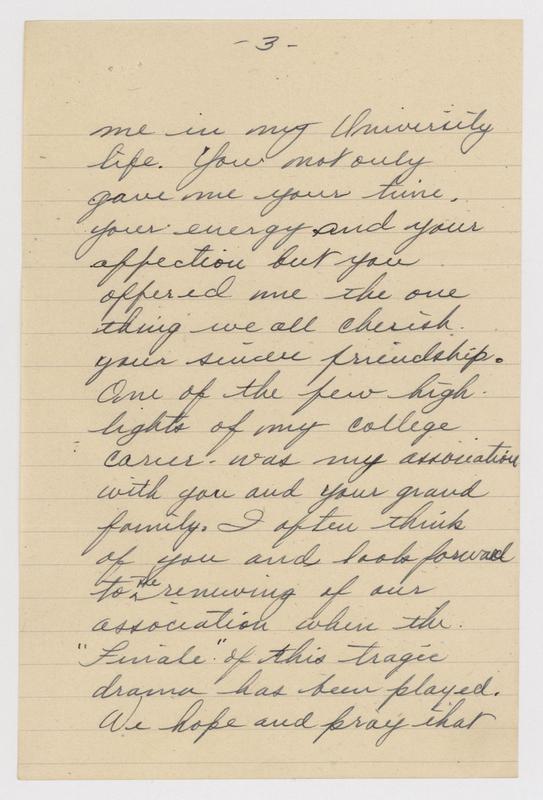 - 3 -
me in my University
life. You not only
gave me your time,
your energy and your
affection but you
offered me the one
thing we all cherish.
your sincere friendship.
One of the few high-
lights of my college
career - was my association
with you and your grand
family. I often think
of you and look forward
to the renewing of our
association when the
"Finale" of this tragic
drama has been played.
We hope and pray that